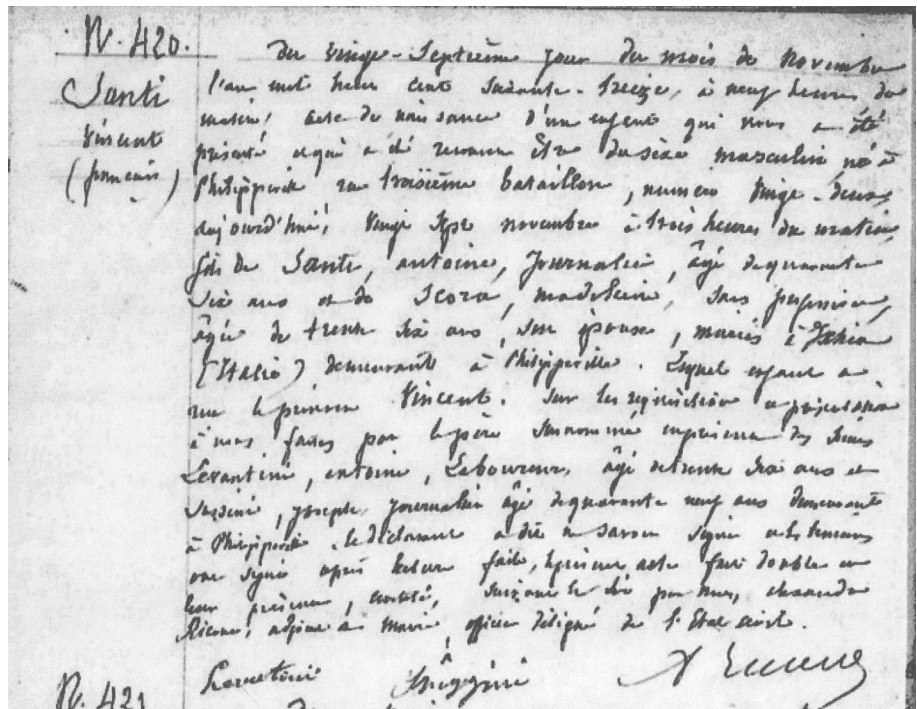 N. 420.
Santi
Vincent
(français)
Du Vingt-Septième jour du mois de Novembre
l'an mil huit cent Soixante-treize, à neuf heures du
matin, acte de naissance d'un enfant qui nous a été
présenté et qui a été reconnu être du sexe masculin né à
Philippeville rue troisième bataillon, numéro Vingt-deux,
aujourd'hui, Vingt sept novembre à trois heures du matin,
fils de Santi, antoine, journalier, âgé de quarante
six ans et de Scora, madeleine, sans profession,
âgée de trente six ans, son épouse, mariés à Ischia
(Italie) demeurants à Philippeville. Lequel enfant a
reçu le prénom Vincent. Sur les réquisition et présentation
à nous faites par le père susnommé en présence des Sieurs
Levantini, antoine, Laboureur, âgé de trente six ans et
joseph, journalier âgé de quarante neuf ans demeurant
à Philippeville. le déclarant a dit ne savoir signer et les témoins
ont signé après lecture faite, le présent acte fait double en
leur présence, constaté, suivant la loi par nous,
adjoint au Maire, officier délégué de l'Etat civil.
N. 421